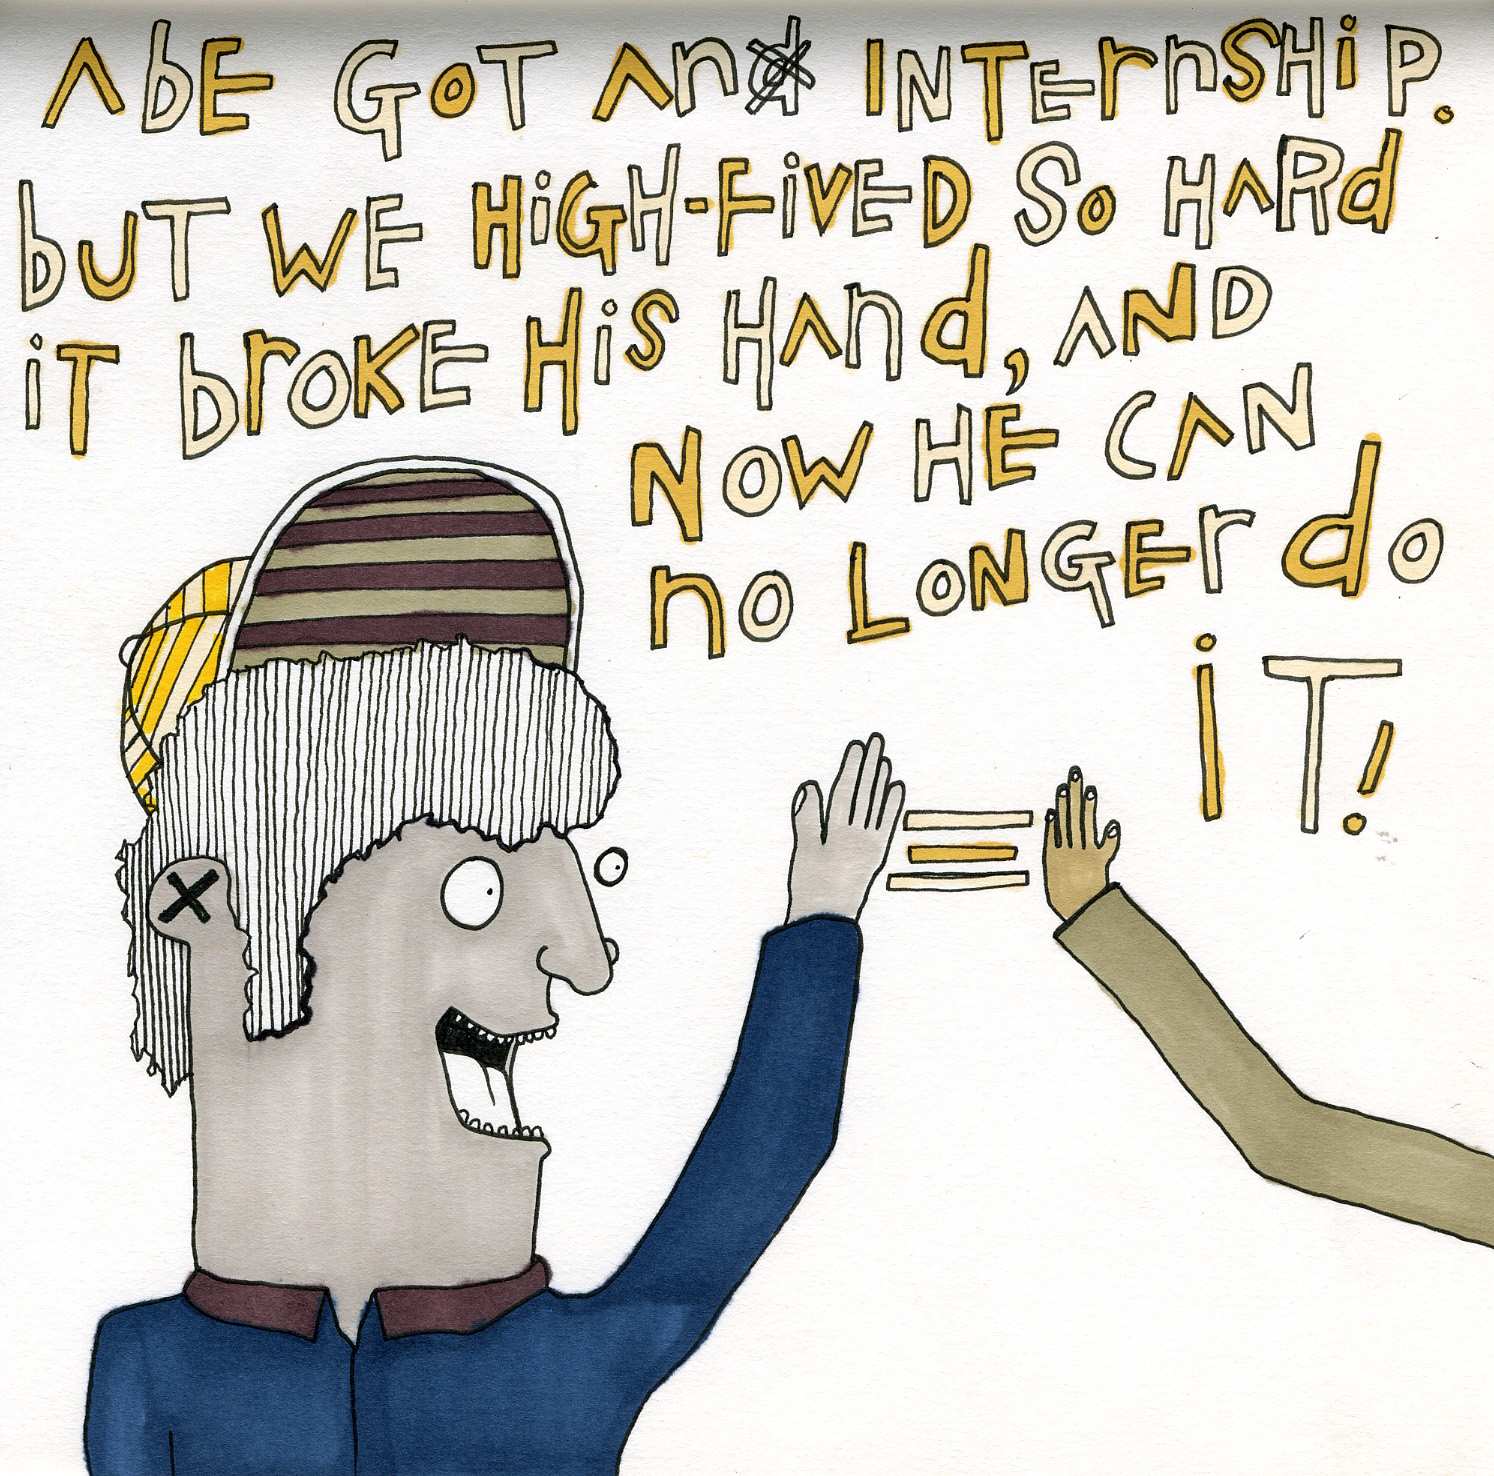 AbE GOT An INTErnSHiP.
bUT WE HiGH-FiVED SO HARd
iT brOKE HiS HAnd, AND
NOW HE CAN
nO LONGEr do
iT!